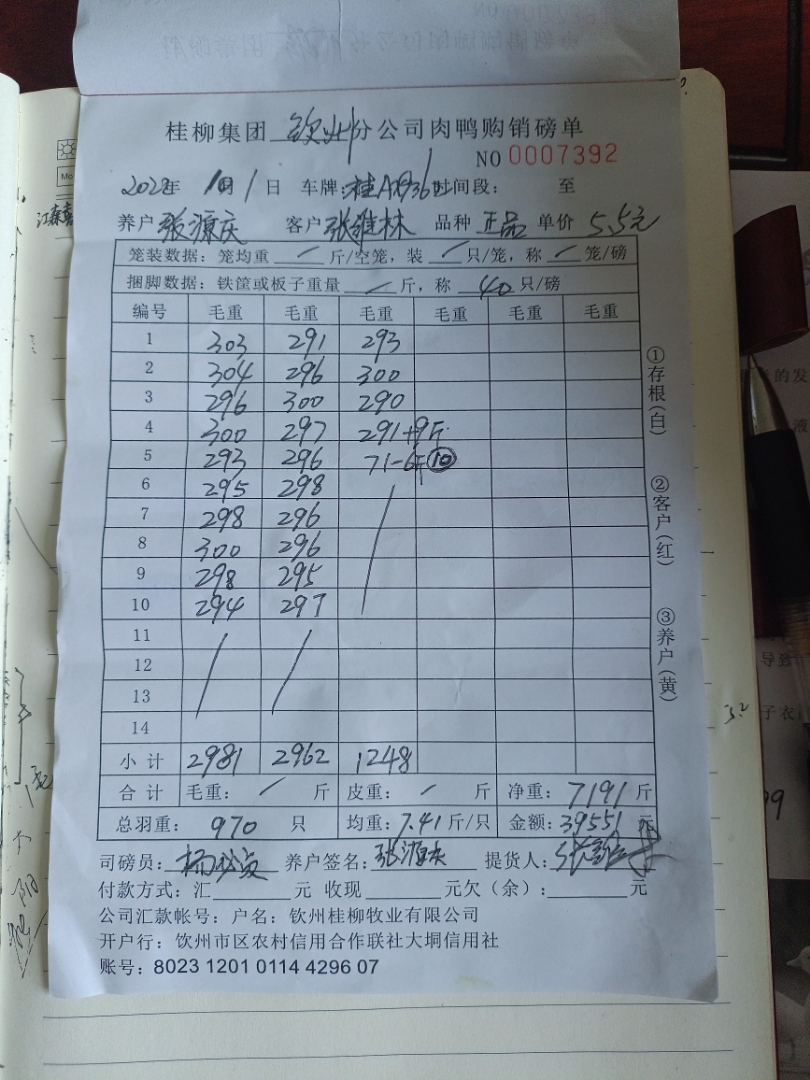 桂柳集团 钦州 分公司肉鸭购销磅单
NO 0007392
2022年 10月1日 车牌:桂A 时间段: 至
养户 张源庆 客户 张维林 品种 正品 单价 5.5元
笼装数据: 笼均重 / 斤/空笼, 装 / 只/笼, 称 / 笼/磅
捆脚数据: 铁筐或板子重量 / 斤, 称 40 只/磅
编号 毛重 毛重 毛重 毛重 毛重 毛重
1 303 291 293
2 304 296 300
3 296 300 290
4 300 297 291+9斤
5 293 296 71-6斤⑩
6 295 298
7 298 296
8 300 296
9 298 295
10 294 297
11
12
13
14
小计 2981 2962 1248
合计 毛重: / 斤 皮重: / 斤 净重: 7191 斤
总羽重: 970 只 均重: 7.41 斤/只 金额: 39551 元
司磅员: 养户签名: 张源庆 提货人:
付款方式: 汇 元 收现 元欠(余): 元
公司汇款帐号: 户名: 钦州桂柳牧业有限公司
开户行: 钦州市区农村信用合作联社大垌信用社
账号: 8023 1201 0114 4296 07
①存根(白)
②客户(红)
③养户(黄)